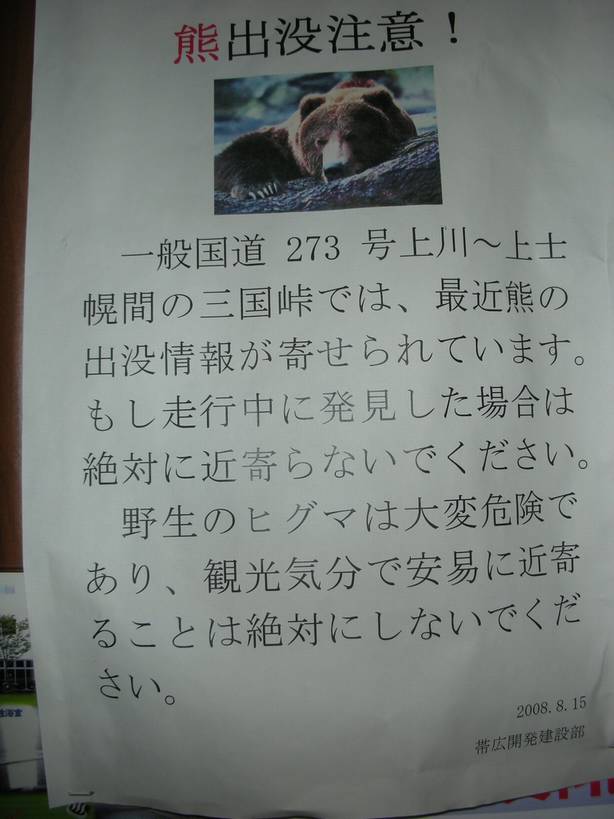 熊出没注意！
一般国道 273 号上川～上士
幌間の三国峠では、最近熊の
出没情報が寄せられています。
もし走行中に発見した場合は
絶対に近寄らないでください。
野生のヒグマは大変危険で
あり、観光気分で安易に近寄
ることは絶対にしないでくだ
さい。
2008.8.15
帯広開発建設部